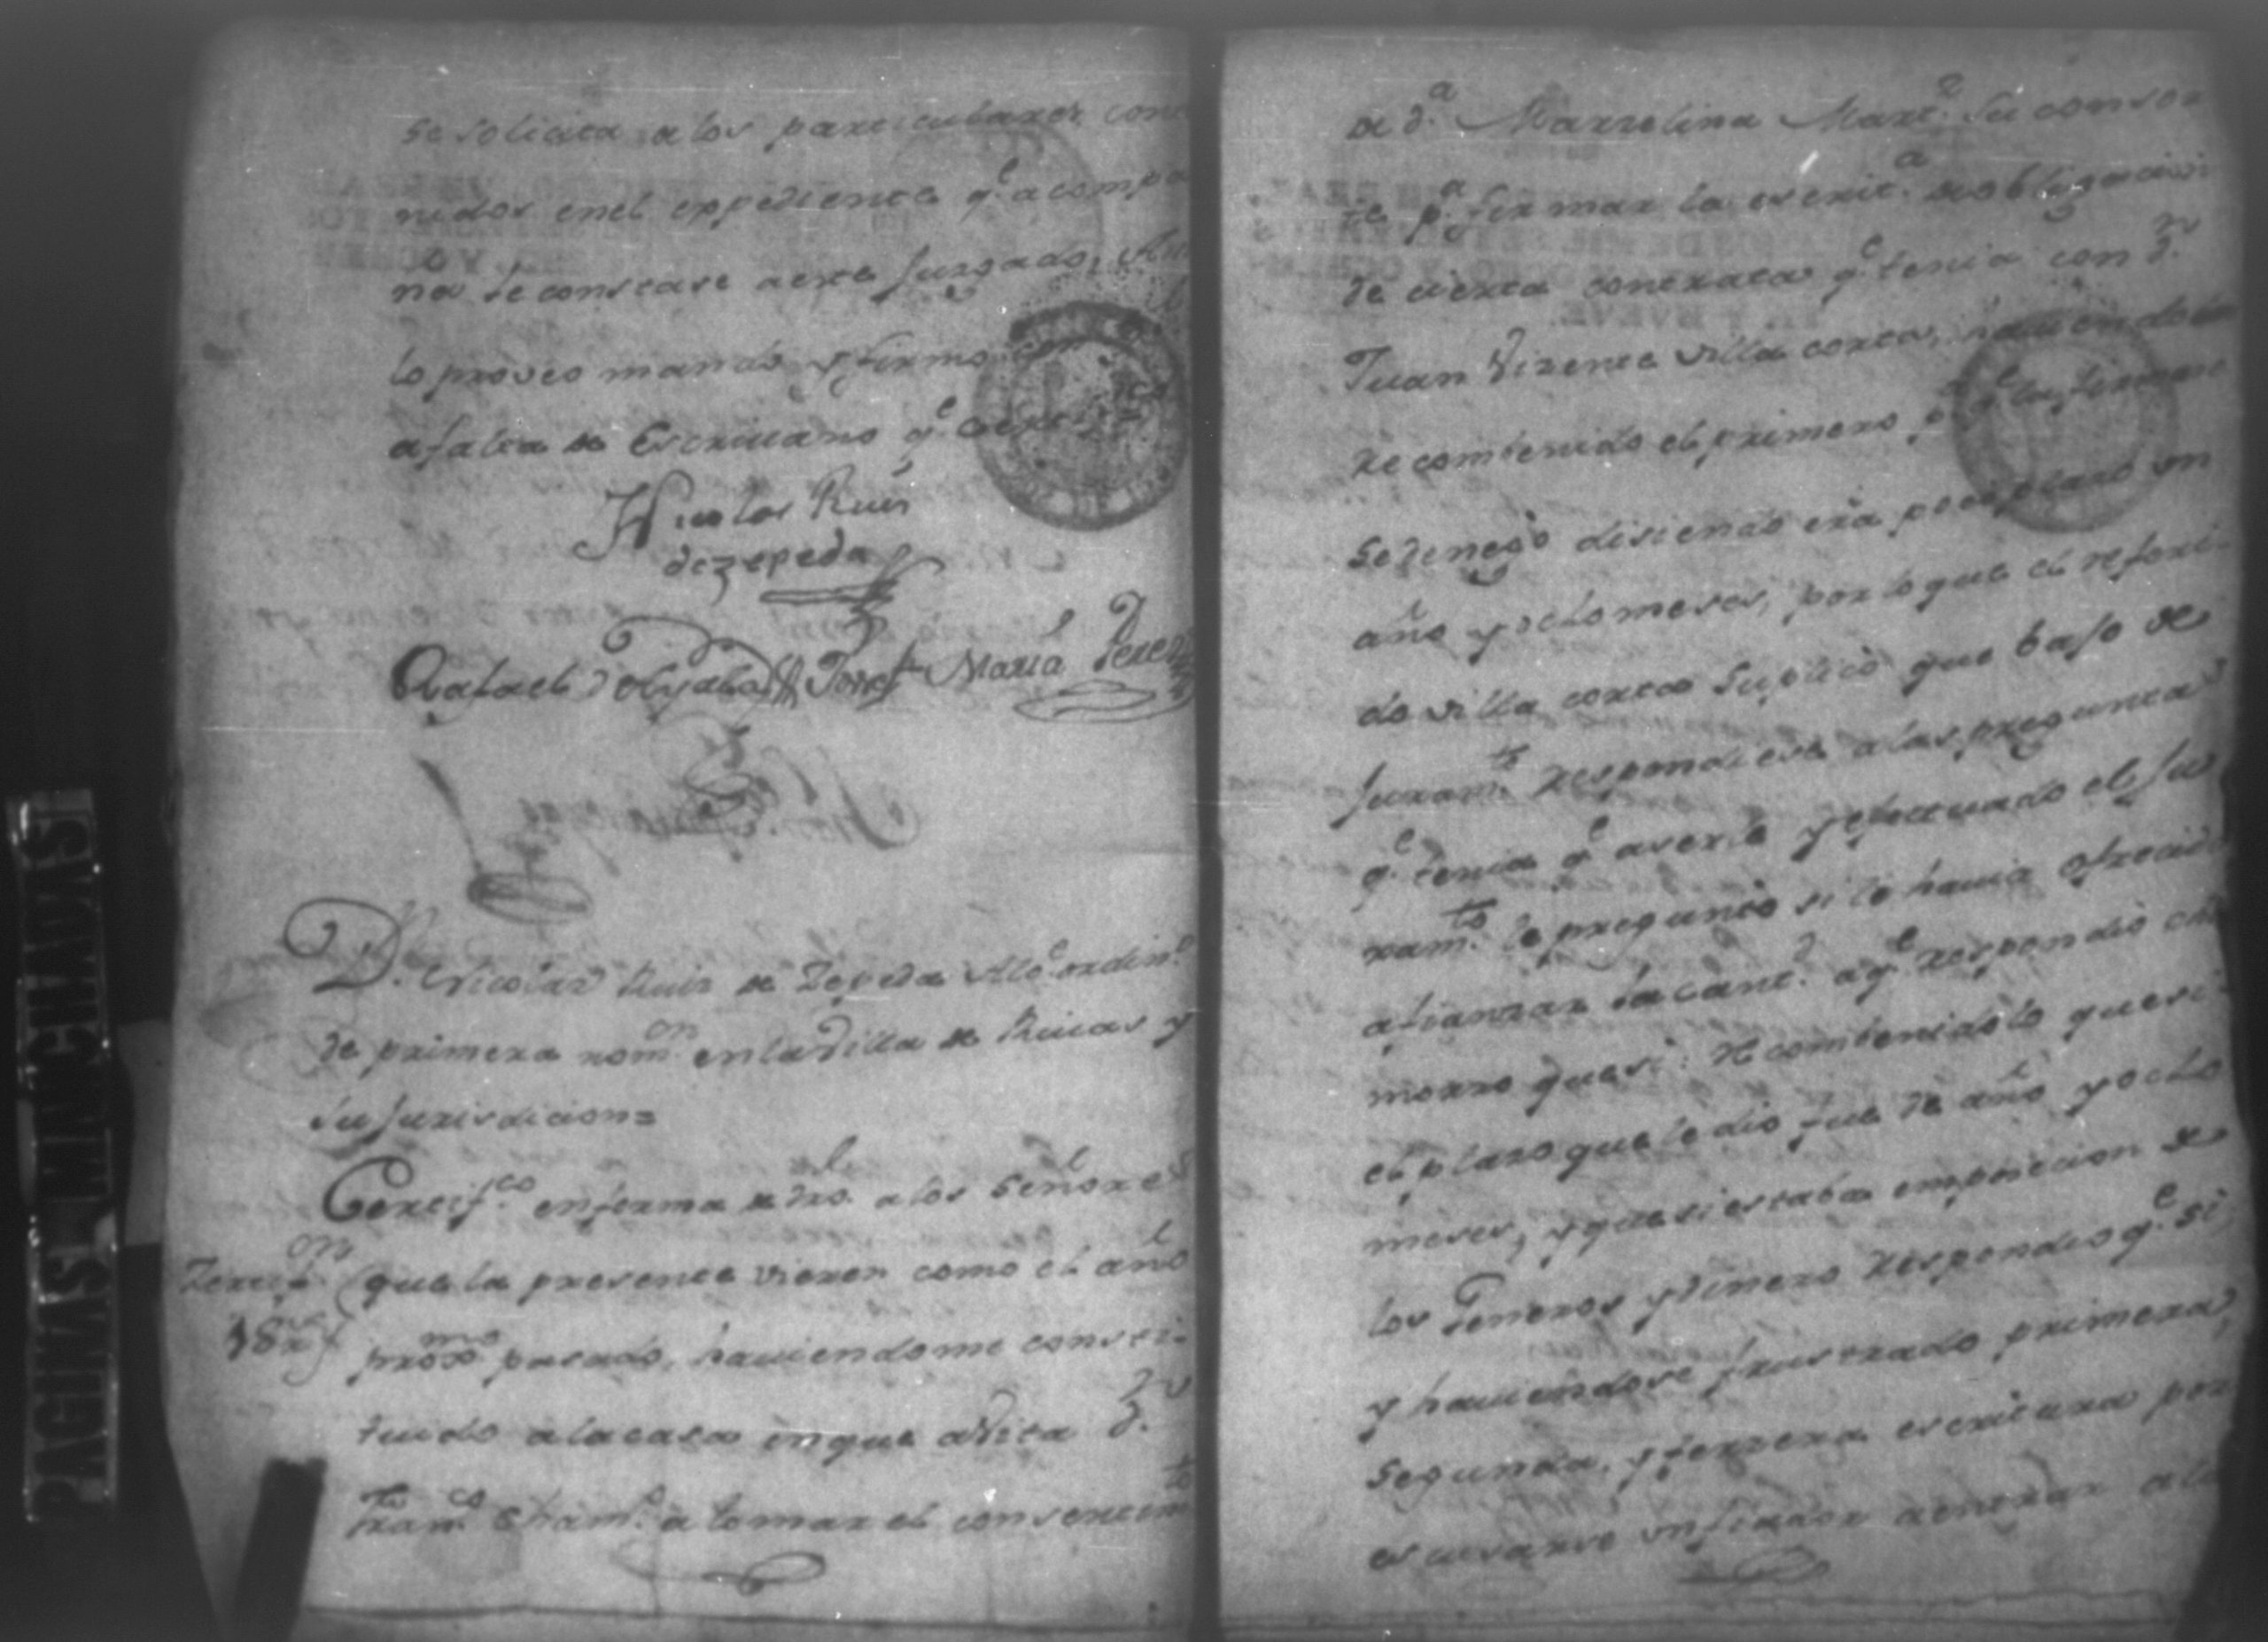 se solicita a los particulares conte
nidos enel exppediente q.e acompa
na se constare aeste Juzgado, Asi
lo proveo mando y firmo
afalta de Escrivano q.e
Nicolas Ruis
dezepeda
Rafael Jose María Perez
D.n Nicolas Ruiz de Zepeda Alc.e ordin.o
de primera nom.on en la Villa de Rivas y
su Jurisdicion=
Certif.co enforma de dro. a los Señores
Zertif.on
que la presente vieren como el año
prox.mo pasado, haviendome consti-
tuido alacasa enque avita d.n
Fran.co Cham.o a tomar el consentim.to
a d.a Marzelina Mart.z su consor
te p.a firmar la escrit.a de obligacion
de cierta contrata q.e tenia con d.n
Juan Vizente Villa corta, haviendole
recombenido el primero p.a q.e la firmase
sedenegó disiendo era poco plazo un
año y ocho meses, por lo que el referi-
do villa corta suplicó que bajo de
Juram.to respondiese a las preguntas
q.e tenia q.e averle y efectuado el Ju
ram.to le preguntó si le havia ofrecido
afianzar la cant.d a q.e respondió cha
morro que si: recombenidolo que si
el plazo que le dio fue de año y ocho
meses, y que si estaba enposecion de
los Generos y dinero respondio q.e si
y haviendose frustrado primera,
segunda, y terzera escritura por
escusarse un fiador aentrar a la